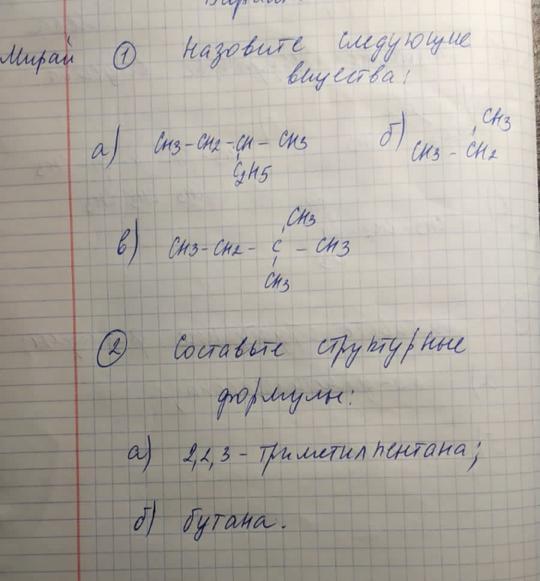 Мирай ① Назовите следующие
вещества:
а) CH3-CH2-CH-CH3
C2H5
б) CH3
CH3-CH2
в) CH3
CH3-CH2-C-CH3
CH3
② Составьте структурные
формулы:
а) 2,2,3-триметилпентана;
б) бутана.